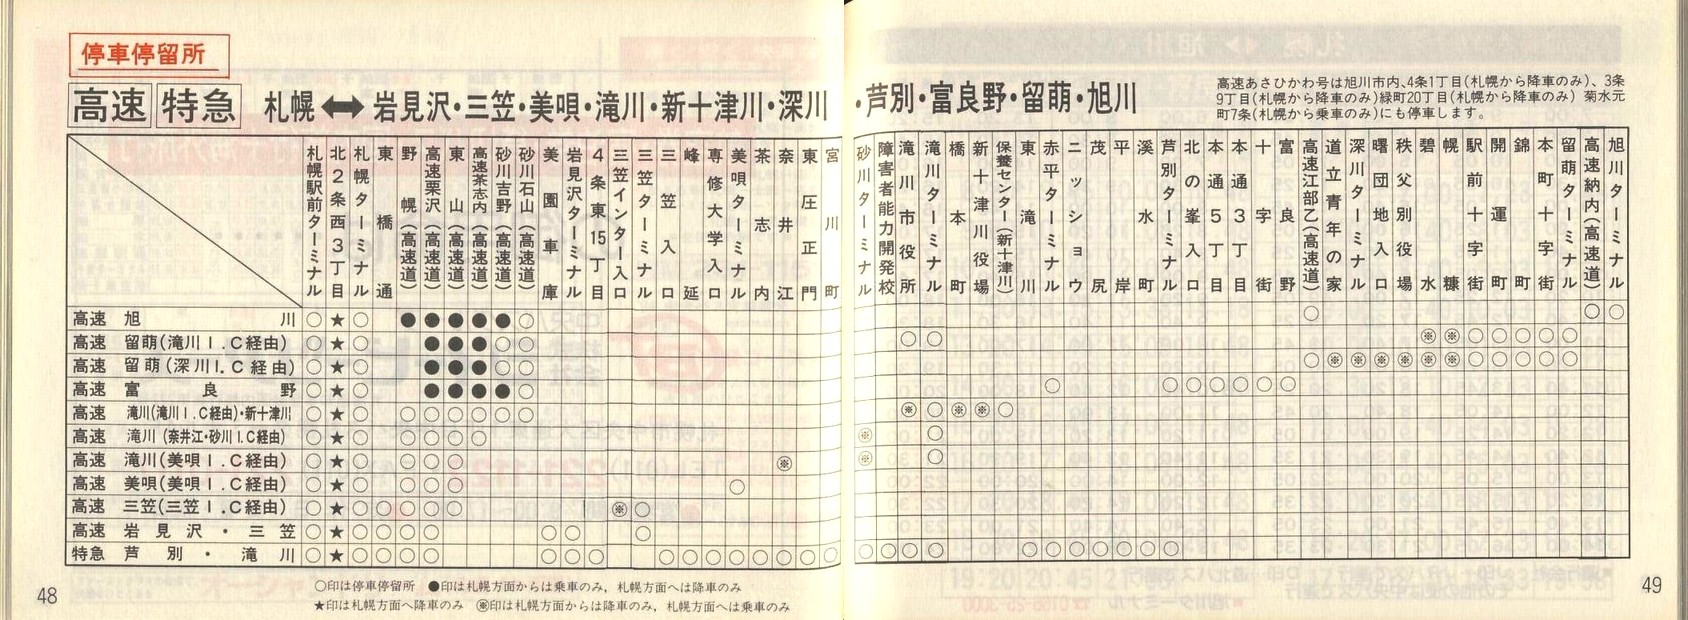 停車停留所
高速 特急 札幌⟷岩見沢・三笠・美唄・滝川・新十津川・深川・芦別・富良野・留萌・旭川
高速あさひかわ号は旭川市内、4条1丁目(札幌から降車のみ)、3条
9丁目(札幌から降車のみ)緑町20丁目(札幌から降車のみ) 菊水元
町7条(札幌から乗車のみ)にも停車します。
札幌駅前ターミナル
北2条西3丁目
札幌ターミナル
東橋通
野幌(高速道)
高速栗沢(高速道)
東山(高速道)
高速茶志内(高速道)
砂川吉野(高速道)
砂川石山(高速道)
美園車庫
岩見沢ターミナル
4条東15丁目
三笠インター入口
三笠ターミナル
三笠入口
峰延
専修大学入口
美唄ターミナル
茶志内
奈井江
東圧正門
宮川町
砂川ターミナル
障害者能力開発校
滝川市役所
滝川ターミナル
橋本町
新十津川役場
保養センター(新十津川)
東滝川
赤平ターミナル
ニッショウ
茂尻
平岸
溪水町
芦別ターミナル
北の峯入口
本通5丁目
本通3丁目
十字街
富良野
高速江部乙(高速道)
道立青年の家
深川ターミナル
曙団地入口
秩父別役場
碧水
幌糠
駅前十字街
開運町
錦町
本町十字街
留萌ターミナル
高速納内(高速道)
旭川ターミナル
高速 旭川 ○ ★ ○ ● ● ● ● ● ○ ○ ○ ○
高速 留萌(滝川I.C経由) ○ ★ ○ ● ● ● ○ ○ ○ ○ ※ ※ ○ ○ ○ ○ ○
高速 留萌(深川I.C経由) ○ ★ ○ ● ● ● ○ ○ ○ ※ ※ ※ ※ ※ ※ ○ ○ ○ ○ ○
高速 富良野 ○ ★ ○ ● ● ● ● ○ ○ ○ ○ ○ ○ ○ ○
高速 滝川(滝川I.C経由)・新十津川 ○ ★ ○ ○ ○ ○ ○ ○ ○ ※ ○ ※ ※ ○
高速 滝川(奈井江・砂川I.C経由) ○ ★ ○ ○ ○ ○ ○ ※ ○
高速 滝川(美唄I.C経由) ○ ★ ○ ○ ○ ○ ※ ※ ○
高速 美唄(美唄I.C経由) ○ ★ ○ ○ ○ ○ ○
高速 三笠(三笠I.C経由) ○ ★ ○ ○ ○ ○ ○ ※ ○
高速 岩見沢・三笠 ○ ★ ○ ○ ○ ○ ○ ○ ○
特急 芦別・滝川 ○ ★ ○ ○ ○ ○ ○ ○ ○ ○ ○ ○ ○ ○ ○ ○ ○ ○ ○ ○ ○ ○ ○ ○ ○ ○ ○ ○ ○
○印は停車停留所 ●印は札幌方面からは乗車のみ, 札幌方面へは降車のみ
★印は札幌方面へ降車のみ ※印は札幌方面からは降車のみ, 札幌方面へは乗車のみ
48
49